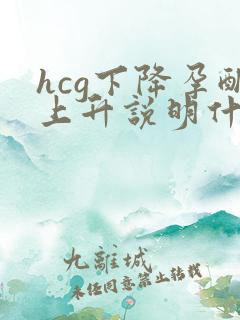 hcg下降孕酮
上升説明什
九離城
未经同意禁止转载